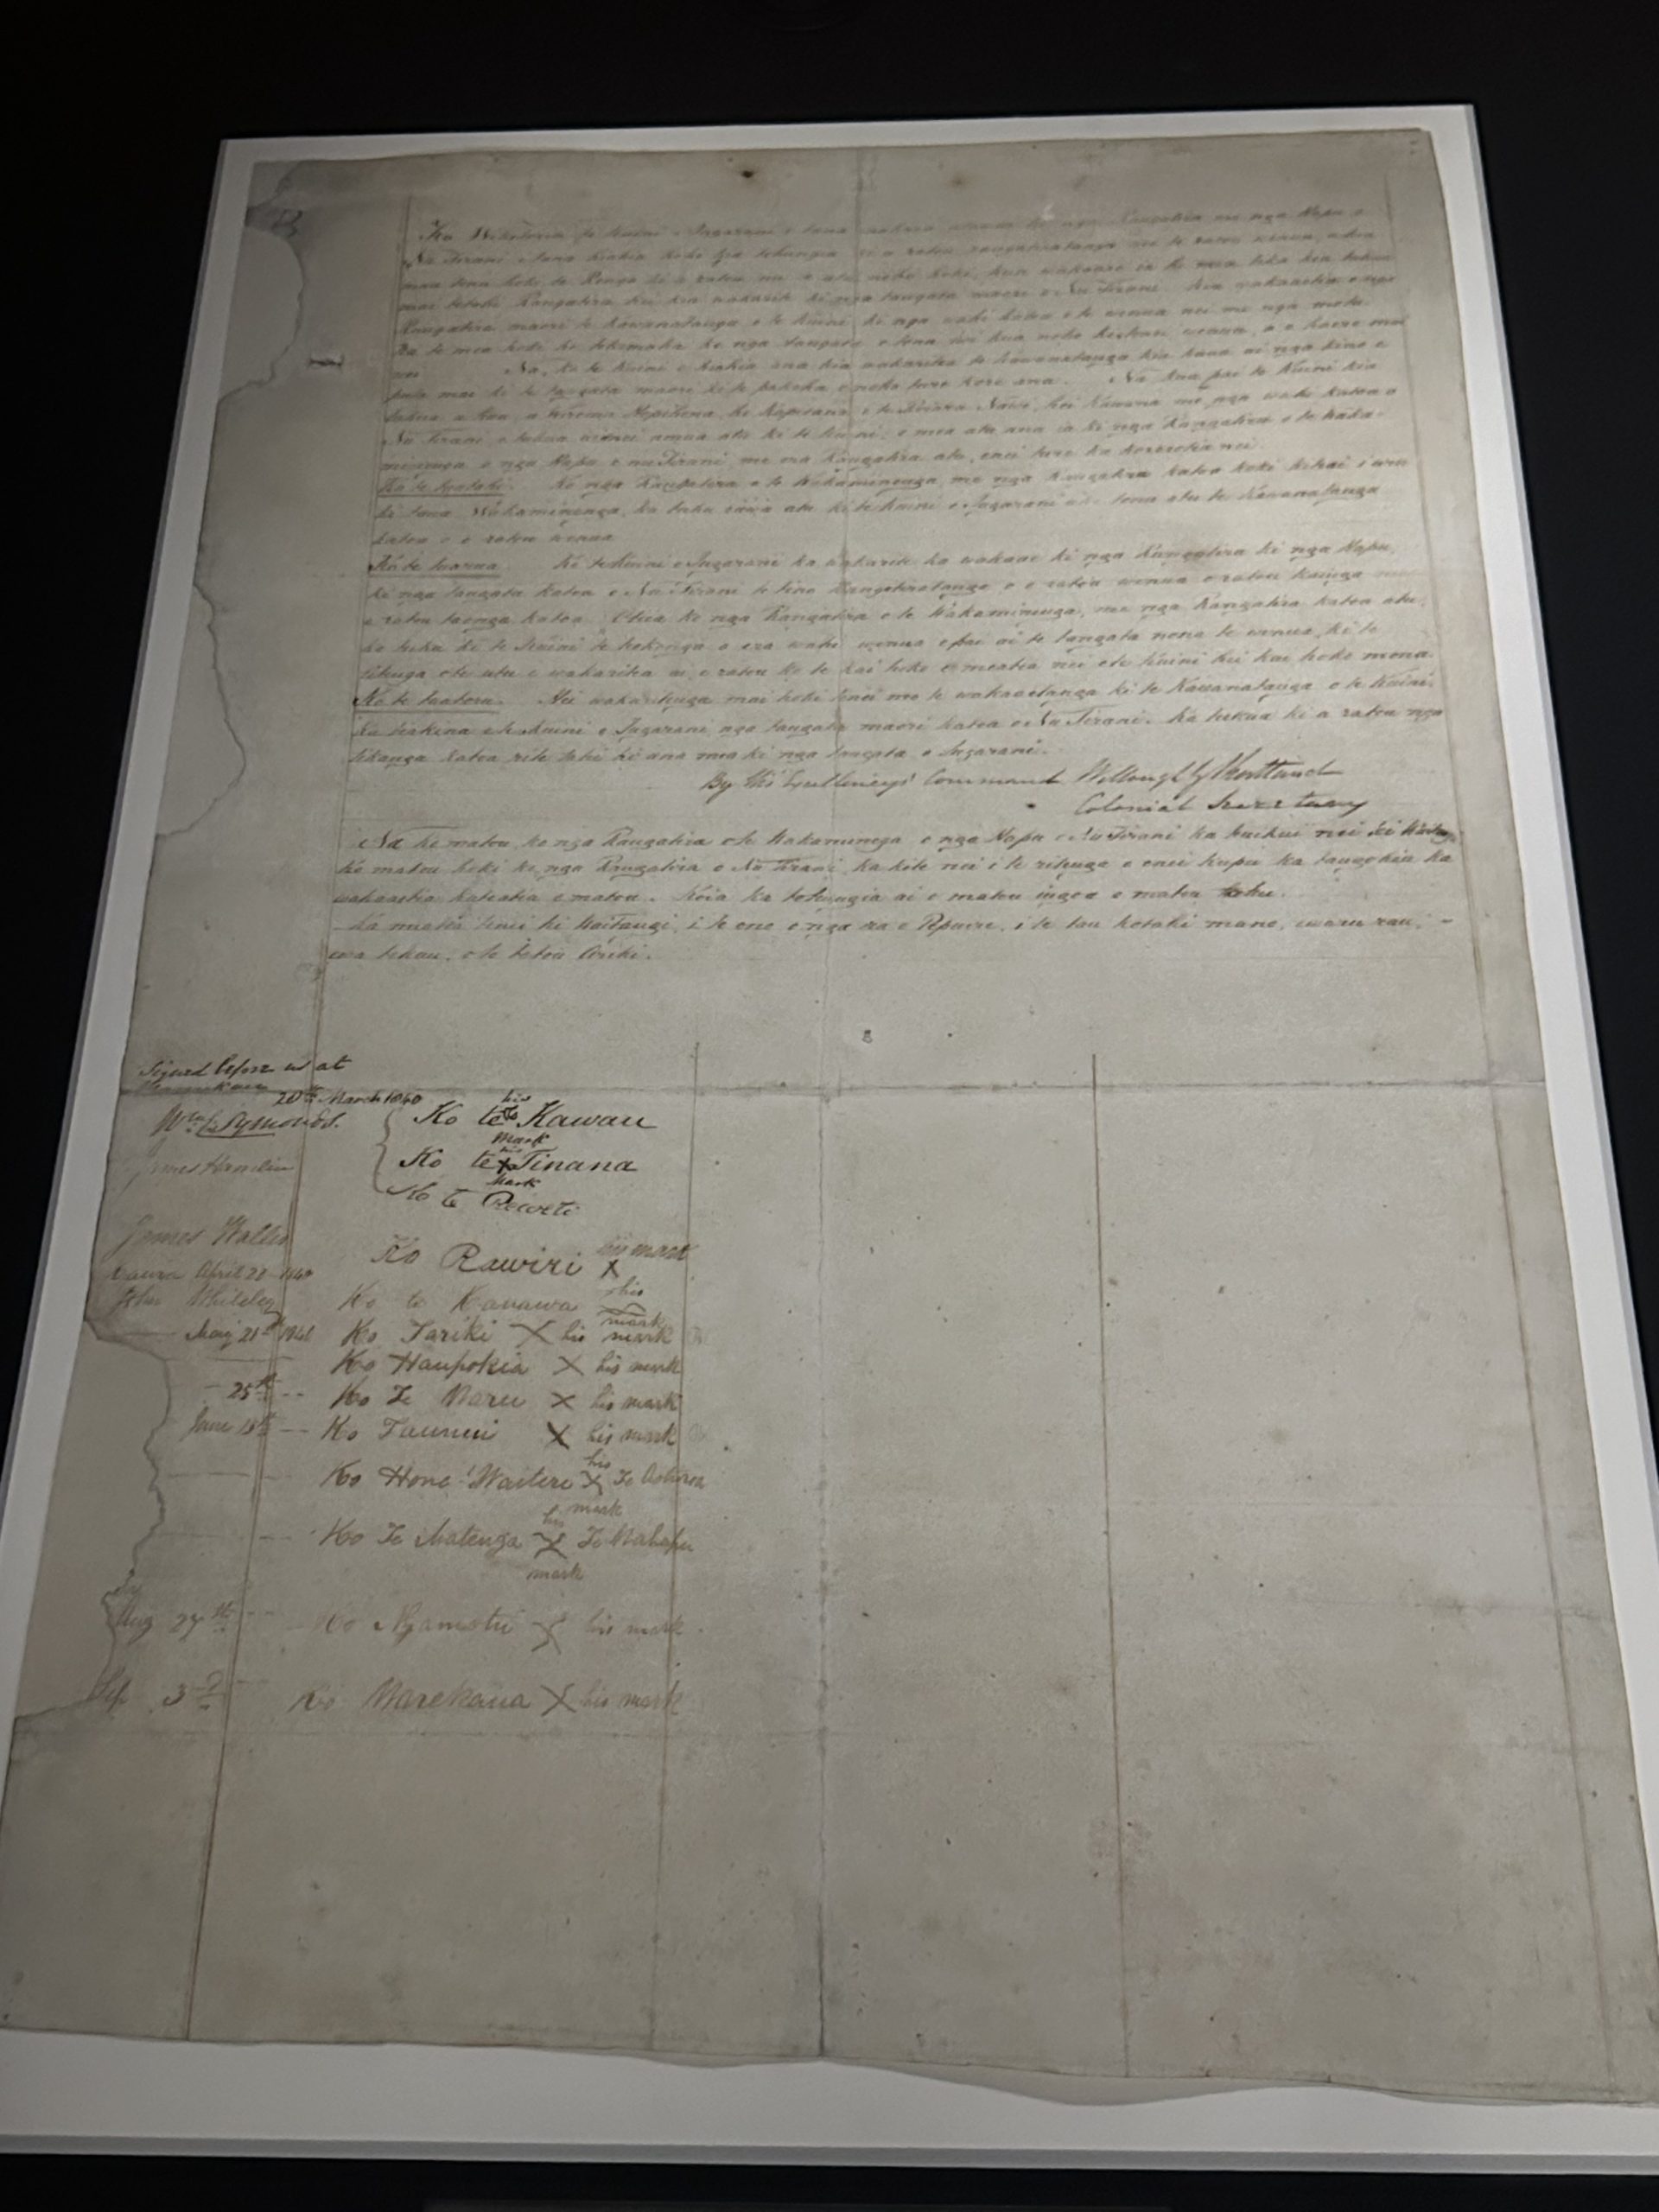 Ko Wikitoria te Kuini o Ingarani i tana nga Rangatira me nga Hapu o
Nu Tirani i tana hiahia hoki kia tohungia ki a ratou o ratou rangatiratanga me to ratou wenua, a kia
mau tona hoki te Rongo ki a ratou me te ata noho hoki kua wakaaro ia he mea tika kia tukua
mai tetahi Rangatira hei kai wakarite ki nga tangata maori o Nu Tirani. kia wakaaetia e nga
Rangatira maori te Kawanatanga o te Kuini ki nga wahi katoa o te wenua nei me nga motu.
na te mea hoki he tokomaha ke nga tangata o tona iwi kua noho ki tenei wenua, a e haere mai
nei Na, ko te Kuini e hiahia ana kia wakaritea te Kawanatanga kia kaua ai nga kino e
puta mai ki te tangata maori ki te pakeha e noho ture kore ana. Na kua pai te Kuini kia
tukua a hau, a Wiremu Hopihona, he Kapitana i te Roiara Nawi, hei Kawana mo nga wahi katoa o
Nu Tirani e tukua aianei amua atu ki te Kuini; e mea atu ana ia ki nga Rangatira o te waka-
minenga o nga Hapu o nu Tirani me era Rangatira atu, enei ture ka korerotia nei.
Ko te tuatahi. Ko nga Rangatira o te Wakaminenga, me nga Rangatira katoa hoki kihai i uru
ki taua Wakaminenga, ka tuku rawa atu ki te Kuini o Ingarani ake tonu atu te Kawanatanga
katoa o o ratou wenua
Ko te tuarua. Ko te Kuini o Ingarani ka wakarite ka wakaae ki nga Rangatira ki nga Hapu,
ki nga tangata katoa o Nu Tirani te tino Rangatiratanga o o ratou wenua o ratou kainga me
o ratou taonga katoa. Otiia ko nga Rangatira o te Wakaminenga, me nga Rangatira katoa atu,
ka tuku ki te Kuini te hokonga o era wahi wenua e pai ai te tangata nona te wenua, ki te
ritenga o te utu e wakaritea ai e ratou ko te kai hoko e meatia nei e te Kuini hei kai hoko mona.
Ko te tuatoru. Hei wakaritenga mai hoki tenei mo te wakaaetanga ki te Kawanatanga o te Kuini.
Ka tiakina e te Kuini o Ingarani nga tangata maori katoa o Nu Tirani. Ka tukua ki a ratou nga
tikanga katoa rite tahi ki ana mea ki nga tangata o Ingarani.
By His Excellencys' Command Willoughby Shortland
Colonial Secretary
Na ko matou, ko nga Rangatira o te Wakaminenga o nga Hapu o Nu Tirani ka huihui nei ki Waitangi
ko matou hoki ko nga Rangatira o Nu Tirani, ka kite nei i te ritenga o enei kupu ka tangohia ka
wakaaetia katoatia e matou. Koia ka tohungia ai o matou ingoa o matou tohu.
Ka meatia tenei ki Waitangi, i te ono o nga ra o Pepuere, i te tau kotahi mano, ewaru rau,
wa tekau, o to tatou Ariki.
Signed before us at
Manukau
20th March 1840
Wm C. Symonds.
James Hamlin
Ko te his Kawau
Mark
Ko te his x Tinana
Mark
Ko te Reweti
James Wallis
Ko Rawiri x his mark
April 28 1840
John Whiteley
Ko te Kanawa his
mark
May 21st 1840 Ko Tariki X his mark
Ko Haupokia X his mark
25th Ko Te Waru X his mark
June 15th Ko Taonui X his mark
Ko Hone Waitere his X Te
mark
Ko Te Matenga his X Te Wahapu
mark
Aug 27th Ko Ngamotu X his mark
Sep 3d Ko Warekaua X his mark